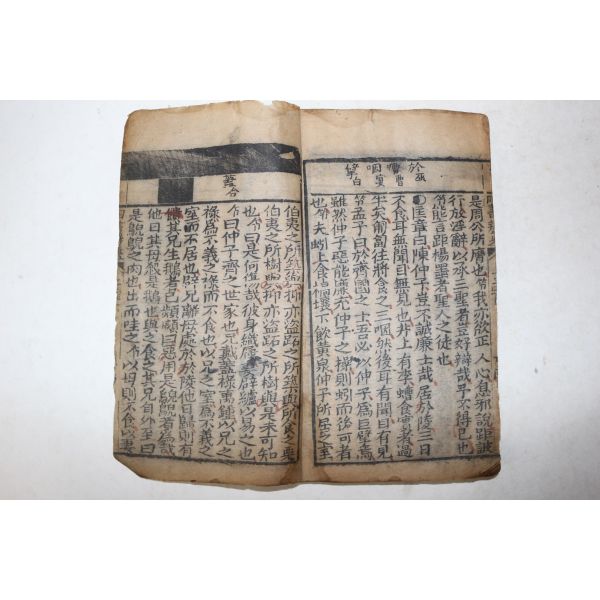 於
螬曹
咽
擘白
是周公所膺也我亦欲正人心息邪說距詖
行放淫辭以承三聖者豈好辯哉予不得已也
能言距楊墨者聖人之徒也
○匡章曰陳仲子豈不誠廉士哉居於陵三日
不食耳無聞目無見也井上有李螬食實者過
半矣匍匐往將食之三咽然後耳有聞目有見
孟子曰於齊國之士吾必以仲子爲巨擘焉
雖然仲子惡能廉充仲子之操則蚓而後可者
也夫蚓上食槁壤下飲黃泉仲子所居之室
蓋合
伯夷之所築與抑亦盜跖之所築與所食之粟
伯夷之所樹與抑亦盜跖之所樹與是未可知
也曰是何傷哉彼身織屨妻辟纑以易之也
曰仲子齊之世家也兄戴蓋祿萬鍾以兄之
祿爲不義之祿而不食也以兄之室爲不義之
室而不居也辟兄離母處於於陵他日歸則有
饋其兄生鵝者己頻顣曰惡用是鶃鶃者爲哉
他日其母殺是鵝也與之食之其兄自外至曰
是鶃鶃之肉也出而哇之以母則不食以妻